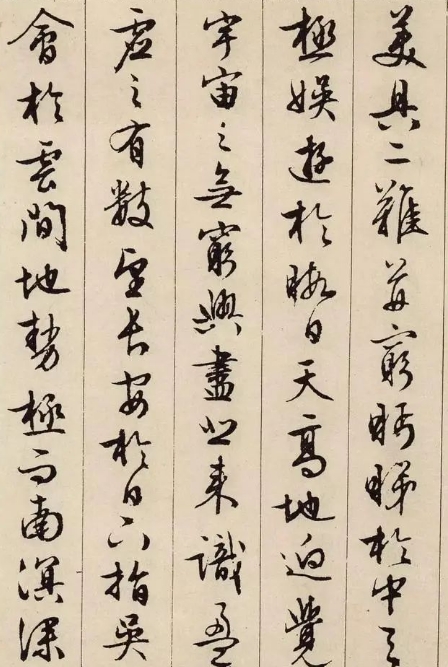 美具二難并窮眄睇於中天
極娛遊於暇日天高地迥覺
宇宙之無窮興盡悲來識盈
虛之有數望長安於日下指吳
會於雲間地勢極而南溟深